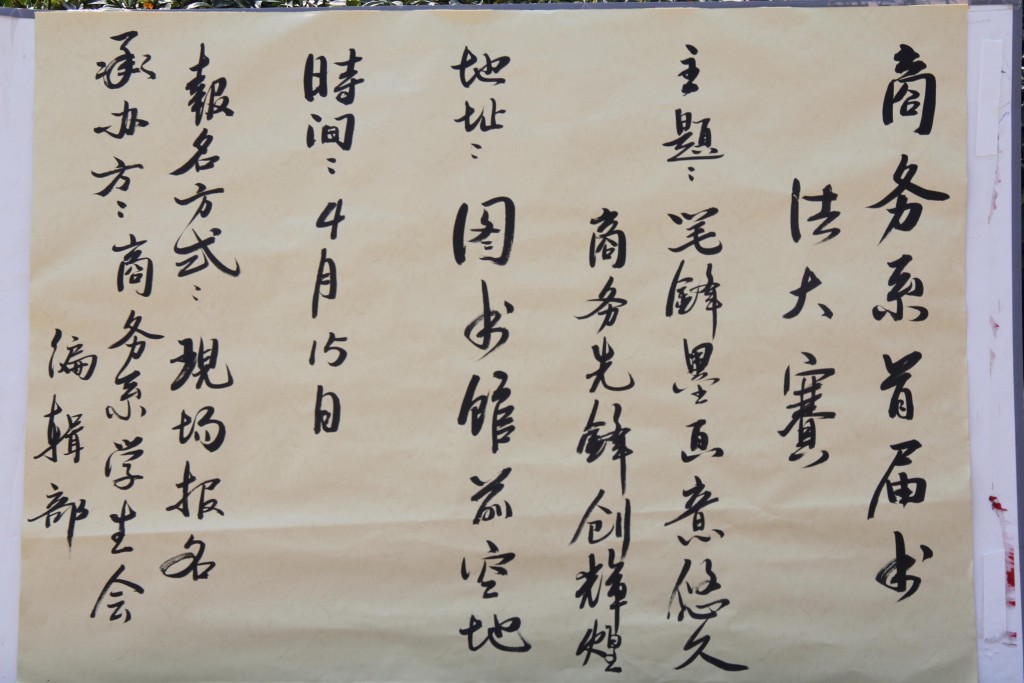 商务系首届书
法大赛
主题：笔鋒墨画意悠久
商务先鋒创辉煌
地址：图书馆前空地
時间：4月15日
報名方式：現场报名
承办方：商务系学生会
编辑部